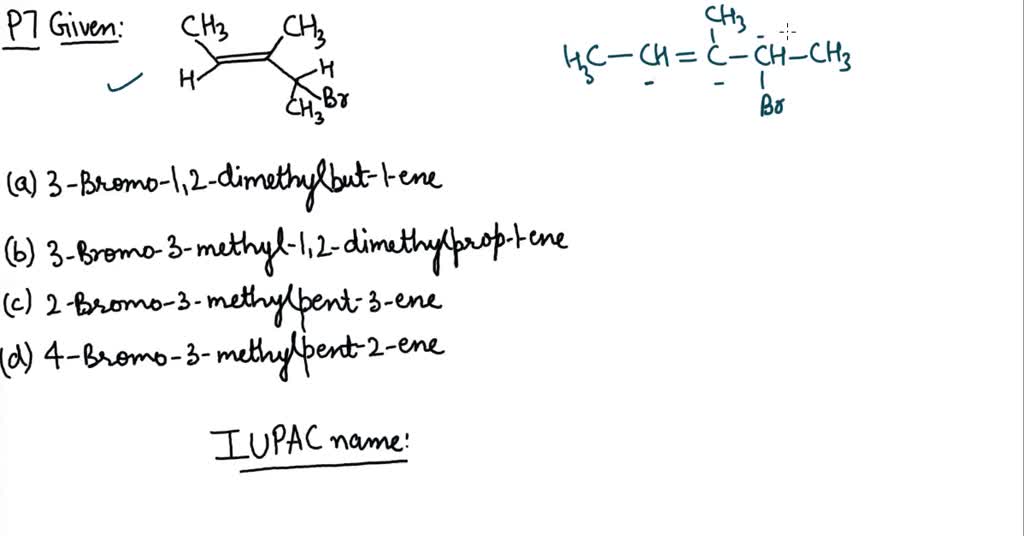 P7 Given:
CH3 CH3
H H
CH3 Br
CH3
H3C-CH=C-CH-CH3
Br
(a) 3-Bromo-1,2-dimethylbut-1-ene
(b) 3-Bromo-3-methyl-1,2-dimethylprop-1-ene
(c) 2-Bromo-3-methylpent-3-ene
(d) 4-Bromo-3-methylpent-2-ene
IUPAC name: